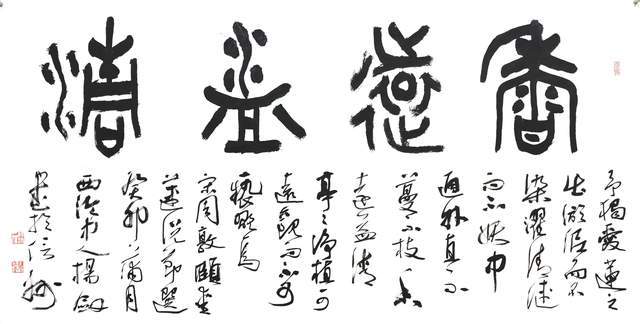 香遠益清
予獨愛蓮之
出淤泥而不
染濯清漣
而不妖中
通外直不
蔓不枝香
遠益清
亭亭淨植可
遠觀而不可
褻玩焉
宋周敦頤愛
蓮說節選
癸卯蒲月
西泠人楊劍
書於信州